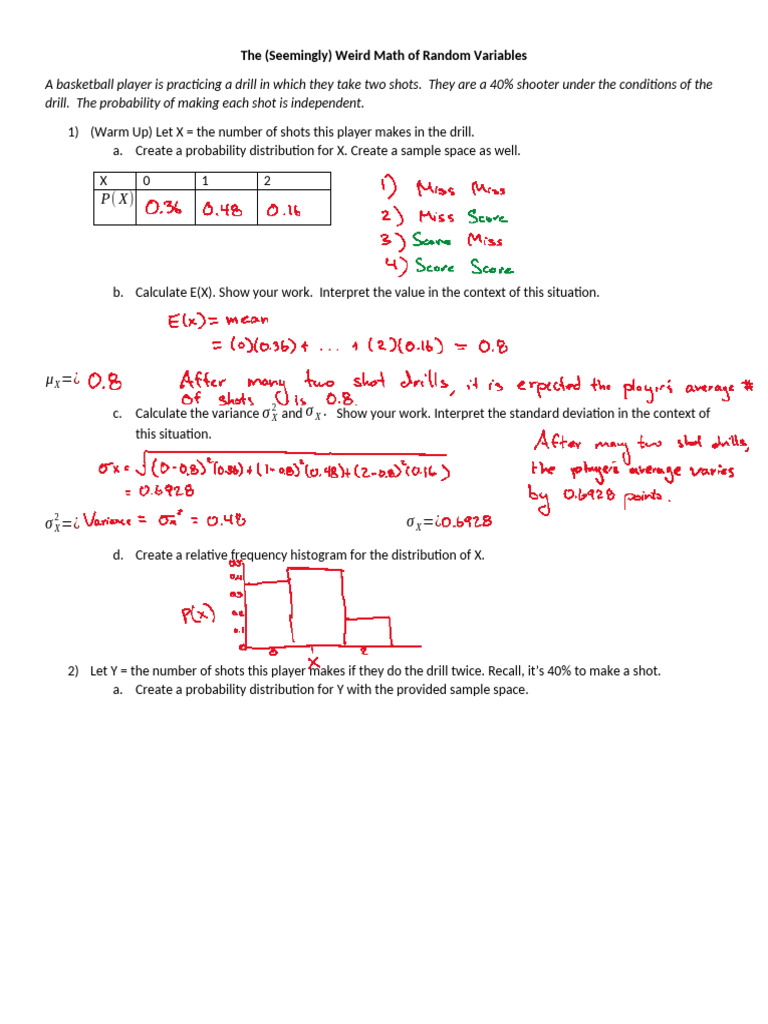 The (Seemingly) Weird Math of Random Variables
A basketball player is practicing a drill in which they take two shots. They are a 40% shooter under the conditions of the
drill. The probability of making each shot is independent.
1) (Warm Up) Let X = the number of shots this player makes in the drill.
a. Create a probability distribution for X. Create a sample space as well.
X 0 1 2
P(X) 0.36 0.48 0.16
1) Miss Miss
2) Miss Score
3) Score Miss
4) Score Score
b. Calculate E(X). Show your work. Interpret the value in the context of this situation.
E(x) = mean
= (0)(0.36) + ... + (2)(0.16) = 0.8
μX=¿ 0.8 After many two shot drills, it is expected the player's average #
of shots is 0.8.
c. Calculate the variance σ²X and σX. Show your work. Interpret the standard deviation in the context of
this situation.
σx = √(0-0.8)²(0.36)+(1-0.8)²(0.48)+(2-0.8)²(0.16)
= 0.6928
After many two shot drills,
the player's average varies
by 0.6928 points.
σ²X=¿ Variance = σx² = 0.48 σX=¿0.6928
d. Create a relative frequency histogram for the distribution of X.
0.5
0.4
0.3
0.2
0.1
0
P(x)
0 1 2
X
2) Let Y = the number of shots this player makes if they do the drill twice. Recall, it's 40% to make a shot.
a. Create a probability distribution for Y with the provided sample space.